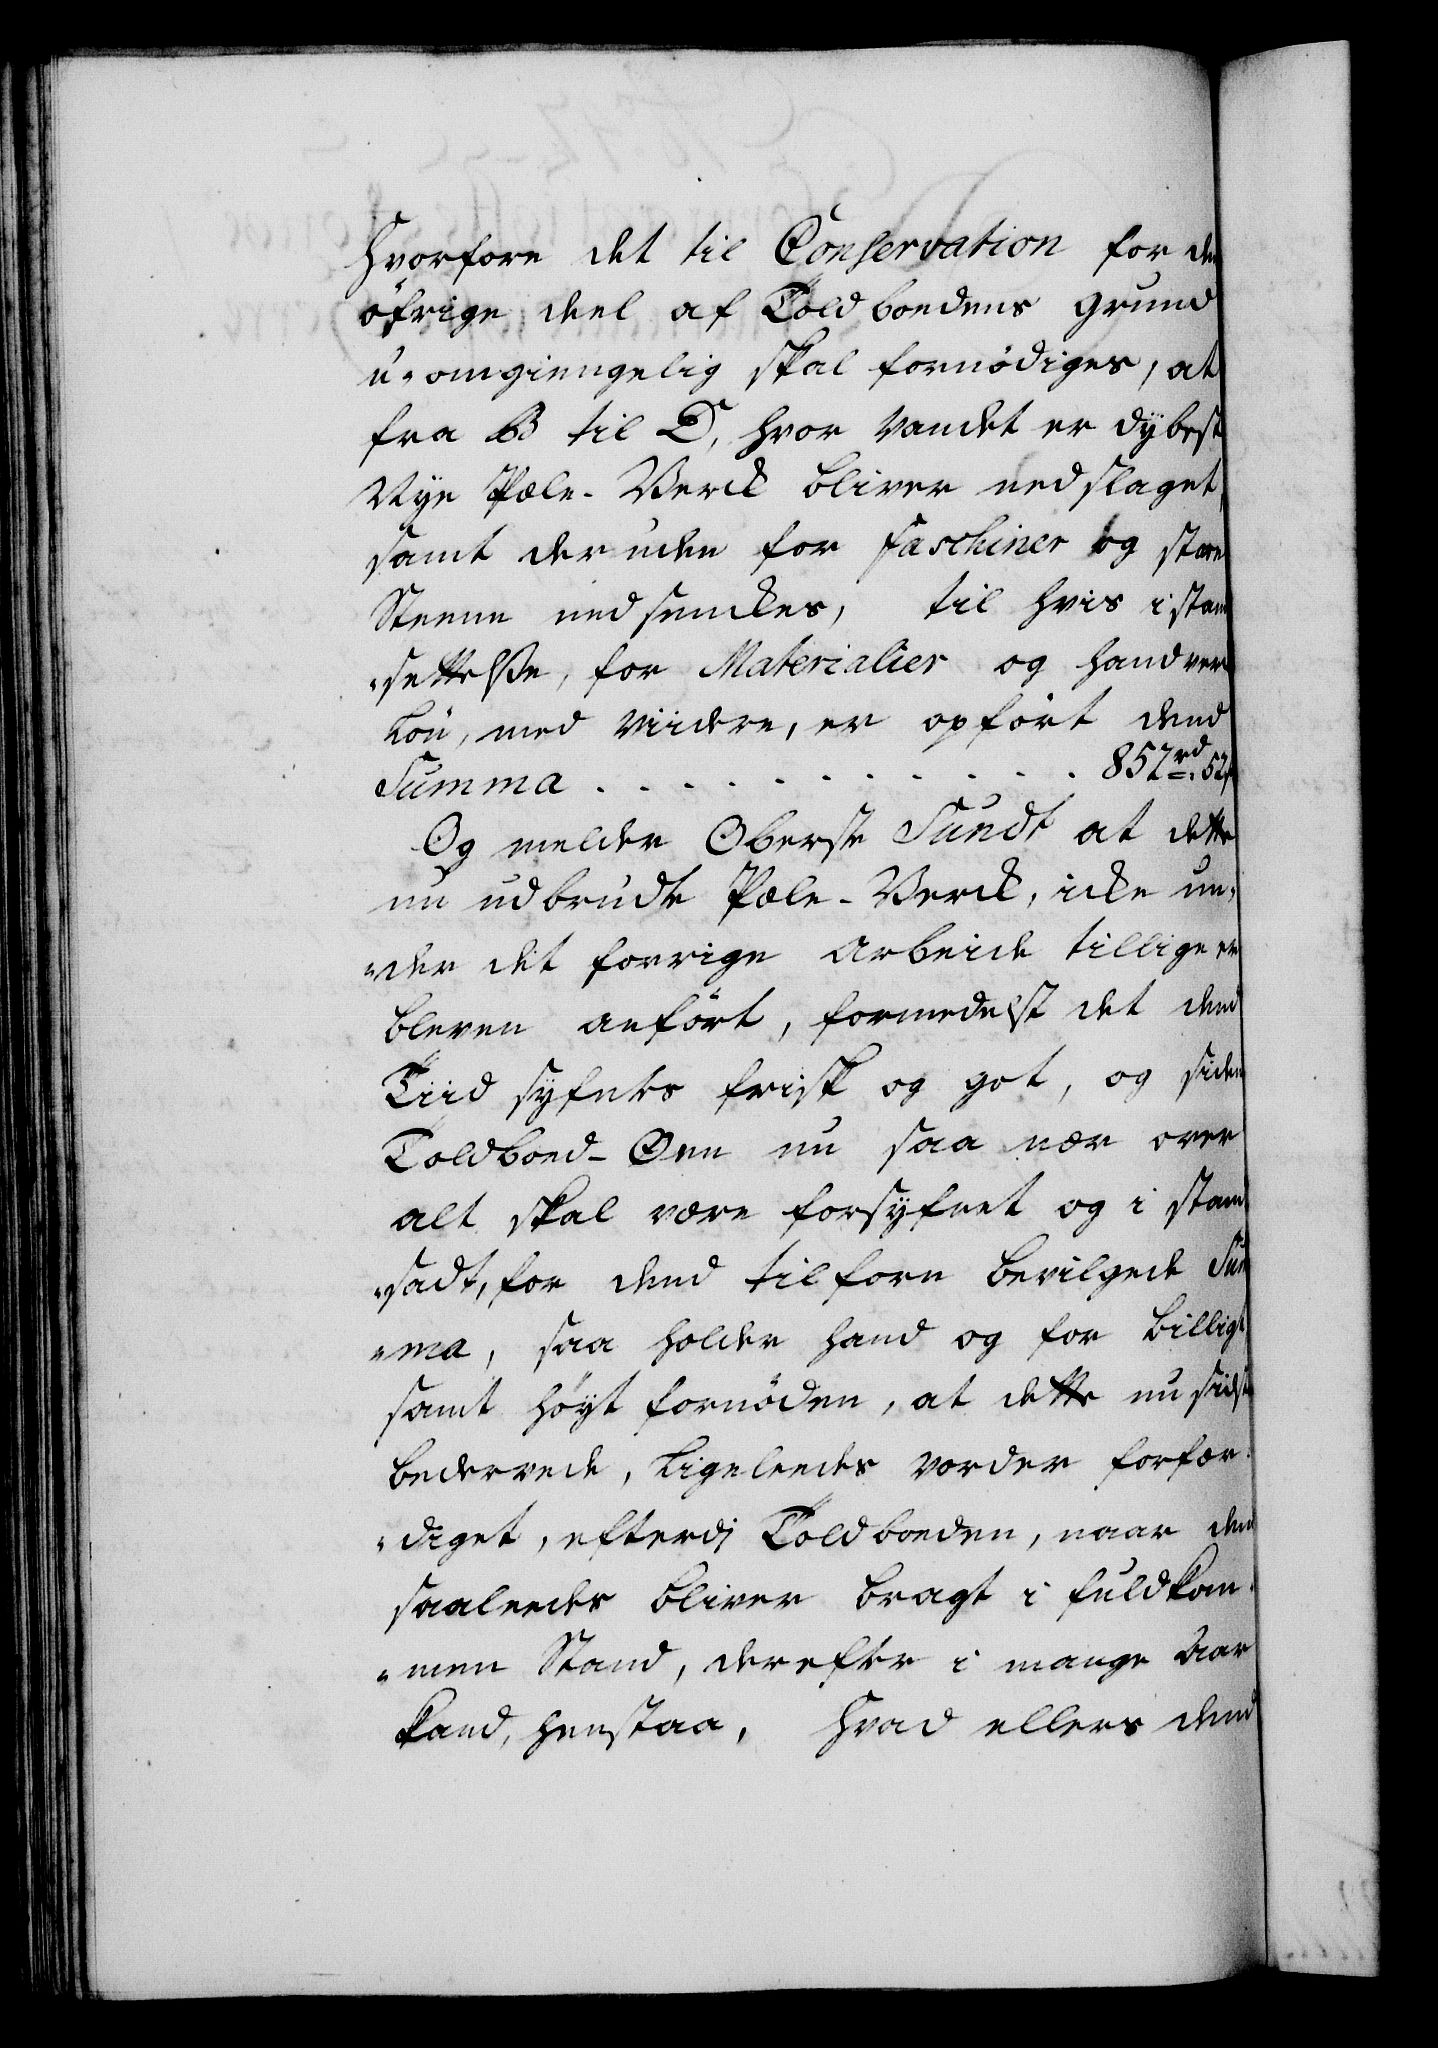 Hvorfore det til Conservation for den
öfrige deel af Toldboedens grund
u-omgiengelig skal fornödiges, at
fra B til D, hvor Vandet er dÿbest
Nÿe Pæle-Verck bliver nedslaget,
samt der uden for faschiner og store
Steene nedsenckes, til hvis i stand
-settelsse, for Materialier og handver
Lön, med Viidere, er opfört dend
Summa . . . . . . . . . . . 852 rd. 52 s
Og melder Oberste Sundt at dette
nu udbrudte Pæle-Verck, icke un-
-der det forrige Arbeide tillige er
bleven anfört, formedelst det dend
Tiid sÿfntes frisk og got, og siden
Toldboed-Öen nu saa nær over
alt skal være forsÿfnet og i stand
-sadt, for dend tilforn bevilgede Sum
-ma, saa holder hand og for billigt
samt höyt fornöden, at dette nu sidste
bedervede, Ligeleedes vorder forfær-
-diget, efterdj Toldboeden, naar den
saaleedes bliver bragt i fuldkom-
-men Stand, derefter i mange Aar
kand, henstaa, Hvad ellers dend